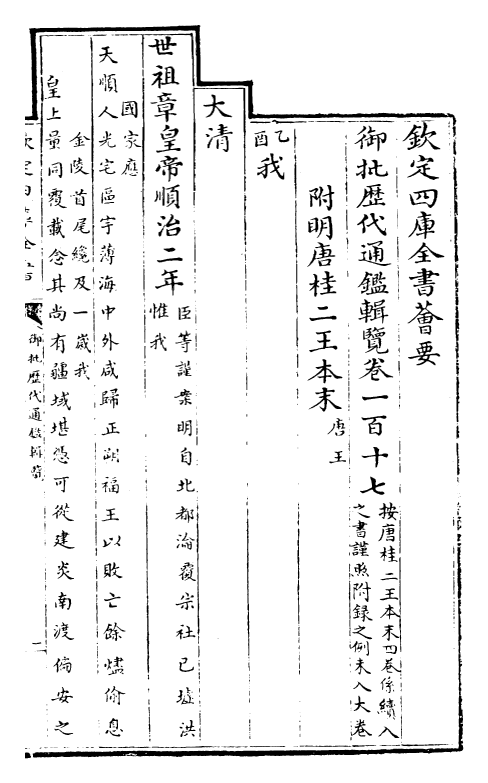 欽定四庫全書薈要
御批歷代通鑑輯覽卷一百十七
按唐桂二王本末四卷係續入
之書謹照附録之例未入大卷
附明唐桂二王本末 唐王
乙酉 我
大清
世祖章皇帝順治二年
臣等謹案明自北都淪覆宗社已墟洪
惟我
國家應
天順人光宅區宇薄海中外咸歸正朔福王以敗亡餘燼偷息
金陵首尾纔及一歲我
皇上量同覆載念其尚有疆域堪憑可從建炎南渡偏安之
欽定四庫全書
御批歷代通鑑輯覽
一